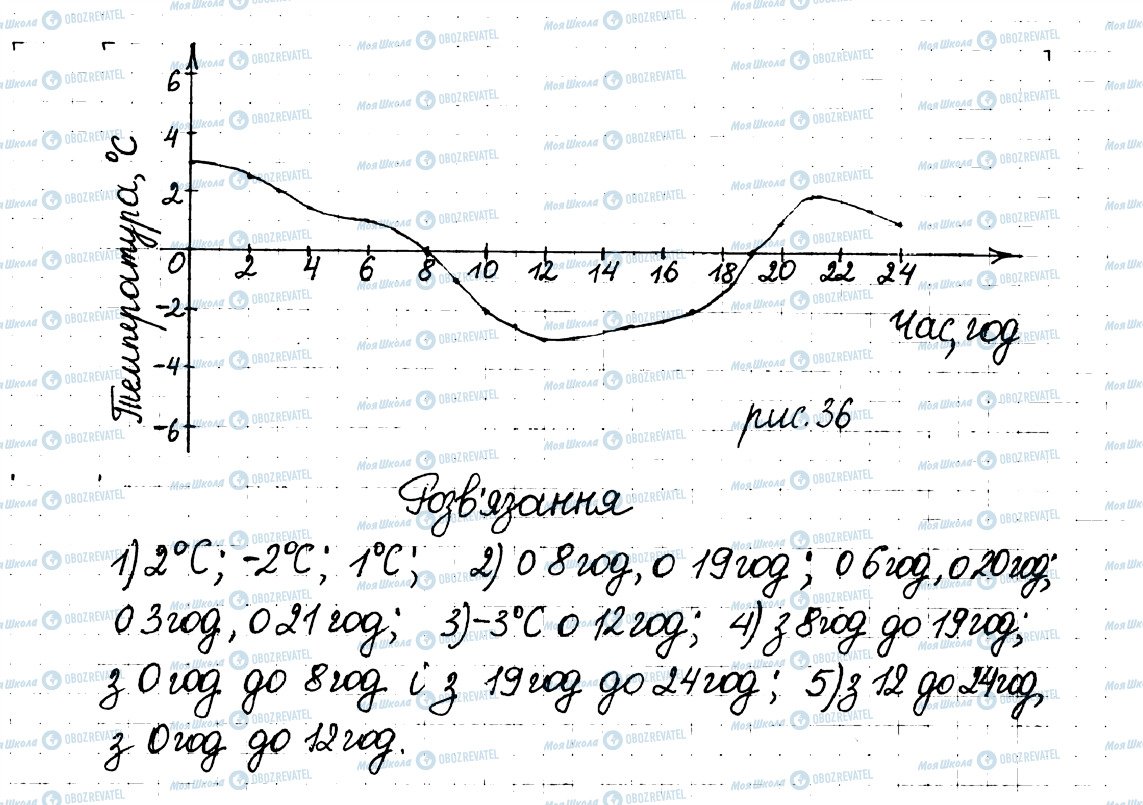 Температура, °C
6
4
2
0
-2
-4
-6
2 4 6 8 10 12 14 16 18 20 22 24
Час, год
рис. 36
Розв'язання
1) 2°C; -2°C; 1°C; 2) о 8 год, о 19 год; о 6 год, о 20 год;
о 3 год, о 21 год; 3) -3°C о 12 год; 4) з 8 год до 19 год;
з 0 год до 8 год і з 19 год до 24 год; 5) з 12 до 24 год,
з 0 год до 12 год.
Моя Школа OBOZREVATEL